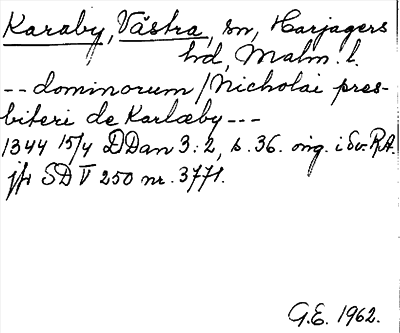 Karaby, Västra, sn, Harjagers
hd, Malm. l.
-- dominorum / Nicholai pres-
biteri de Karlæby ---
1344 15/4 DDan 3:2, s. 36. orig. i Sv. R.A.
jfr SD V 250 nr. 3771.
G.E. 1962.